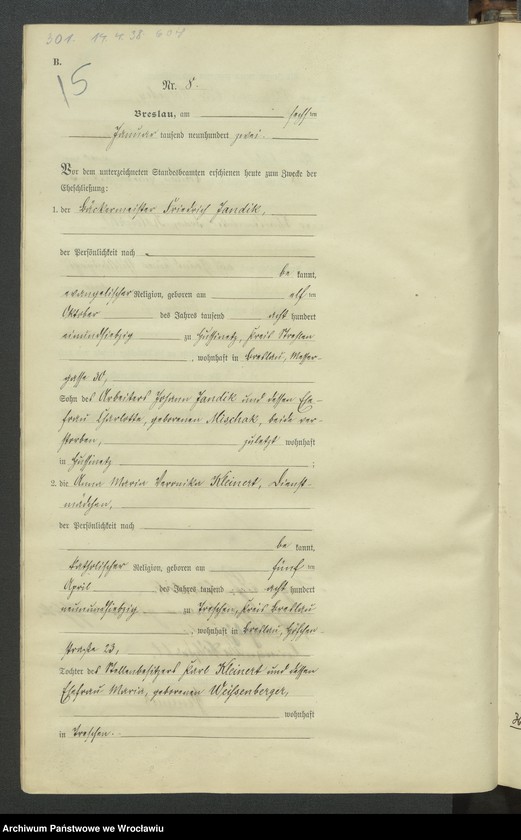 301. 14.4.38 604
B.
15
Nr. 8.
Breslau, am sechsten
Januar tausend neunhundert zwei.
Vor dem unterzeichneten Standesbeamten erschienen heute zum Zwecke der
Eheschließung:
1. der Bäckermeister Friedrich Jandik,
der Persönlichkeit nach
be kannt,
evangelischer Religion, geboren am elften
Oktober des Jahres tausend acht hundert
einundsiebzig zu Hussinetz, Kreis Strehlen
, wohnhaft in Breslau, Messer-
gasse 30,
Sohn des Arbeiters Johann Jandik und dessen Ehe-
frau Charlotte, geborenen Mischak, beide ver-
storben, zuletzt wohnhaft
in Hussinetz ;
2. die Anna Maria Veronika Kleinert, Dienst-
mädchen,
der Persönlichkeit nach
be kannt,
katholischer Religion, geboren am fünften
April des Jahres tausend acht hundert
neunundsiebzig zu Treschen, Kreis Breslau
, wohnhaft in Breslau,
straße 23,
Tochter des Stellenbesitzers Karl Kleinert und dessen
Ehefrau Maria, geborenen Weissenberger,
wohnhaft
in Treschen.
Archiwum Państwowe we Wrocławiu